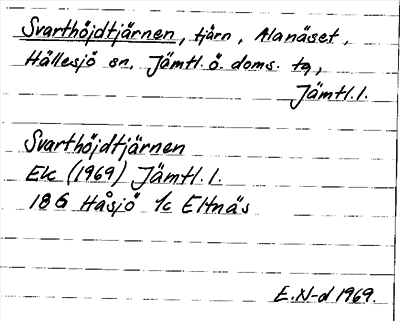 Svarthöjdtjärnen, tjärn, Alanäset,
Hällesjö sn, Jämtl. ö. doms. tg,
Jämtl. l.
Svarthöjdtjärnen
Ek (1969) Jämtl. l.
18G Håsjö 1/c Eltnäs
E.N-d 1969.